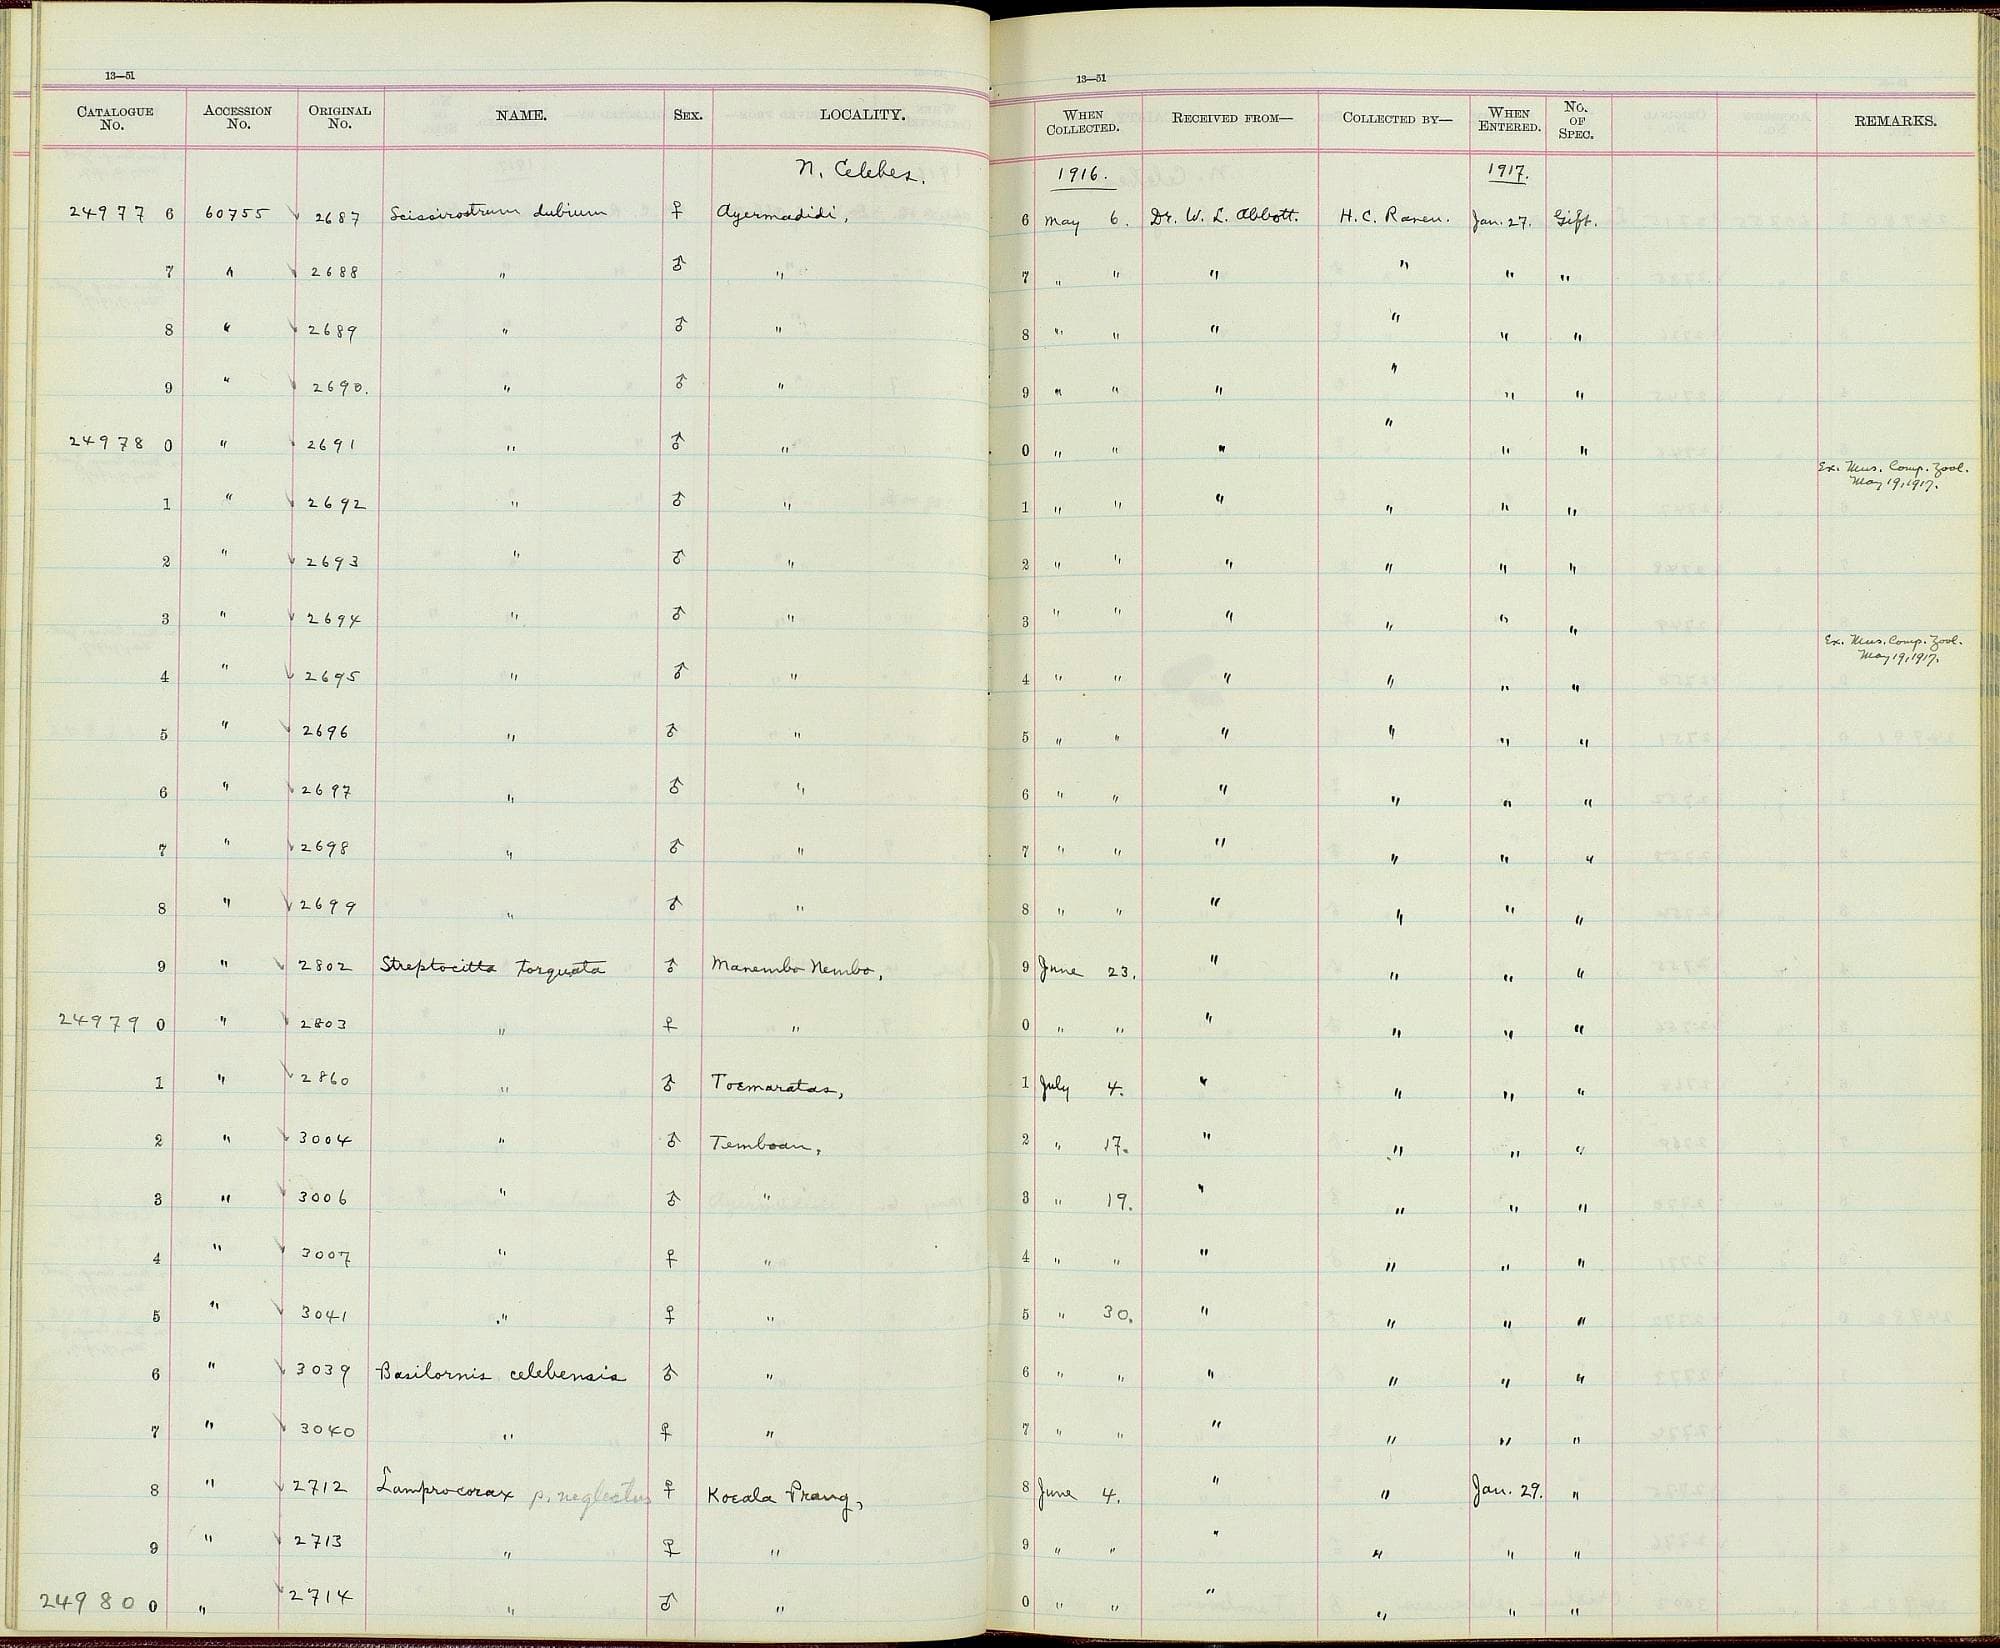 13—51
CATALOGUE No. ACCESSION No. ORIGINAL No. NAME. SEX. LOCALITY.
N. Celebes.
24977 6 60755 2687 Scissirostrum dubium ♀ Ayermadidi,
7 " 2688 " ♂ "
8 " 2689 " ♂ "
9 " 2690. " ♂ "
24978 0 " 2691 " ♂ "
1 " 2692 " ♂ "
2 " 2693 " ♂ "
3 " 2694 " ♂ "
4 " 2695 " ♂ "
5 " 2696 " ♂ "
6 " 2697 " ♂ "
7 " 2698 " ♂ "
8 " 2699 " ♂ "
9 " 2802 Streptocitta torquata ♂ Manembo Nembo,
24979 0 " 2803 " ♀ "
1 " 2860 " ♂ Toemaratas,
2 " 3004 " ♂ Temboan,
3 " 3006 " ♂ "
4 " 3007 " ♀ "
5 " 3041 " ♀ "
6 " 3039 Basilornis celebensis ♂ "
7 " 3040 " ♀ "
8 " 2712 Lamprocorax p. neglectus ♀ Koeala Prang,
9 " 2713 " ♀ "
24980 0 " 2714 " ♂ "
13—51
WHEN COLLECTED. RECEIVED FROM— COLLECTED BY— WHEN ENTERED. No. OF SPEC. REMARKS.
1916. 1917.
6 May 6. Dr. W. L. Abbott. H. C. Raven. Jan. 27. Gift.
7 " " " " " "
8 " " " " " "
9 " " " " " "
0 " " " " " "
Ex. Mus. Comp. Zool.
May 19, 1917.
1 " " " " " "
2 " " " " " "
3 " " " " " "
Ex. Mus. Comp. Zool.
May 19, 1917.
4 " " " " " "
5 " " " " " "
6 " " " " " "
7 " " " " " "
8 " " " " " "
9 June 23. " " " "
0 " " " " " "
1 July 4. " " " "
2 " 17. " " " "
3 " 19. " " " "
4 " " " " " "
5 " 30. " " " "
6 " " " " " "
7 " " " " " "
8 June 4. " " Jan. 29. "
9 " " " " " "
0 " " " " " "